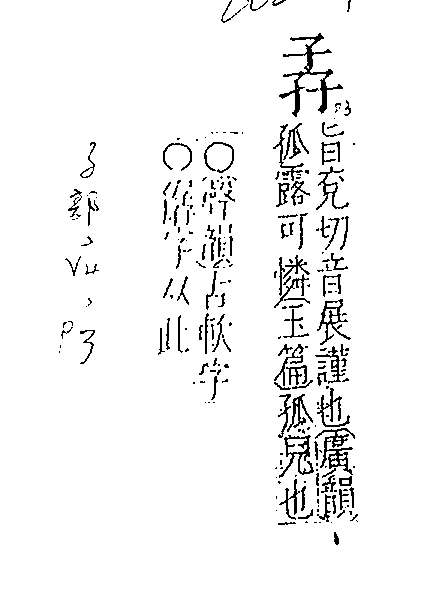 孨
旨兗切音展謹也廣韻
孤露可憐玉篇孤兒也
○聲韻古軟字
○孱字从此
子部、
P3